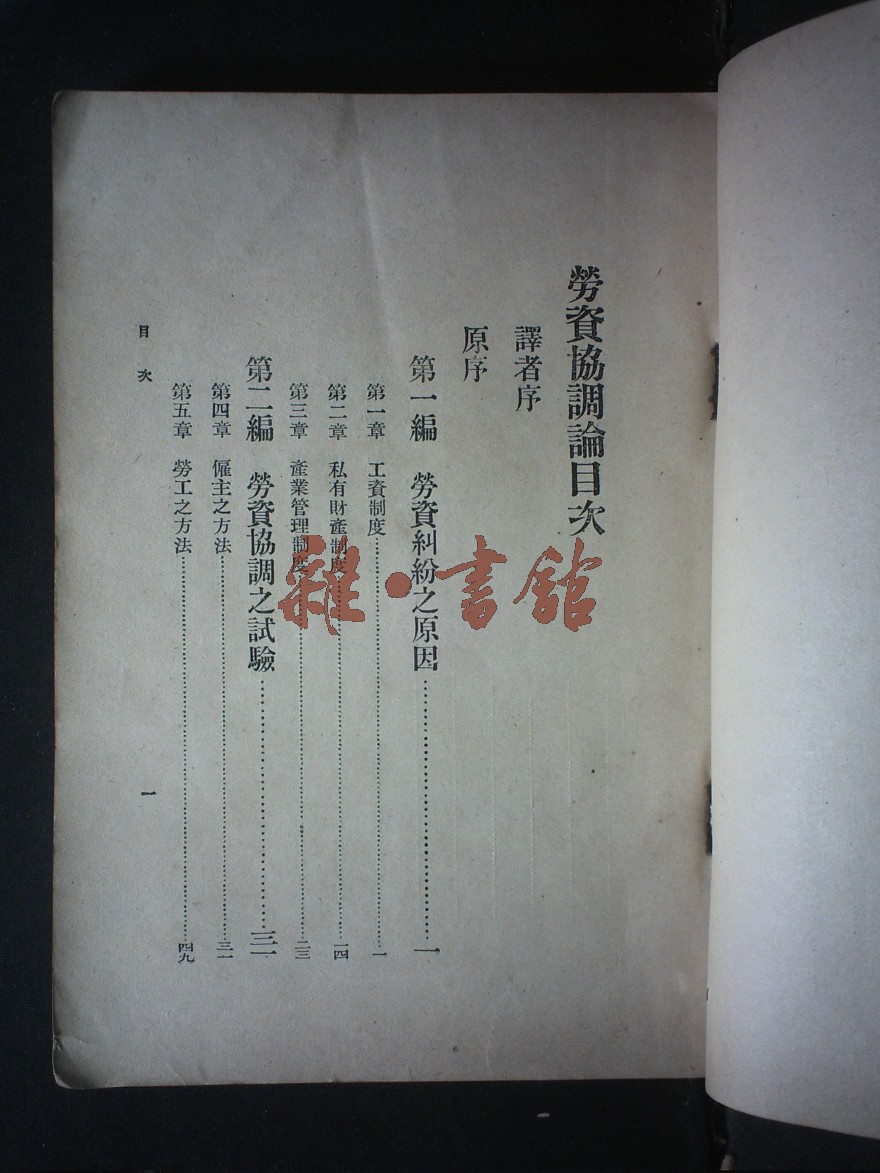 勞資協調論目次
譯者序
原序
第一編　勞資糾紛之原因…………一
第一章　工資制度…………一
第二章　私有財產制度…………一四
第三章　產業管理制度…………二三
第二編　勞資協調之試驗…………三一
第四章　僱主之方法…………三一
第五章　勞工之方法…………四九
目次
一
雜·書館